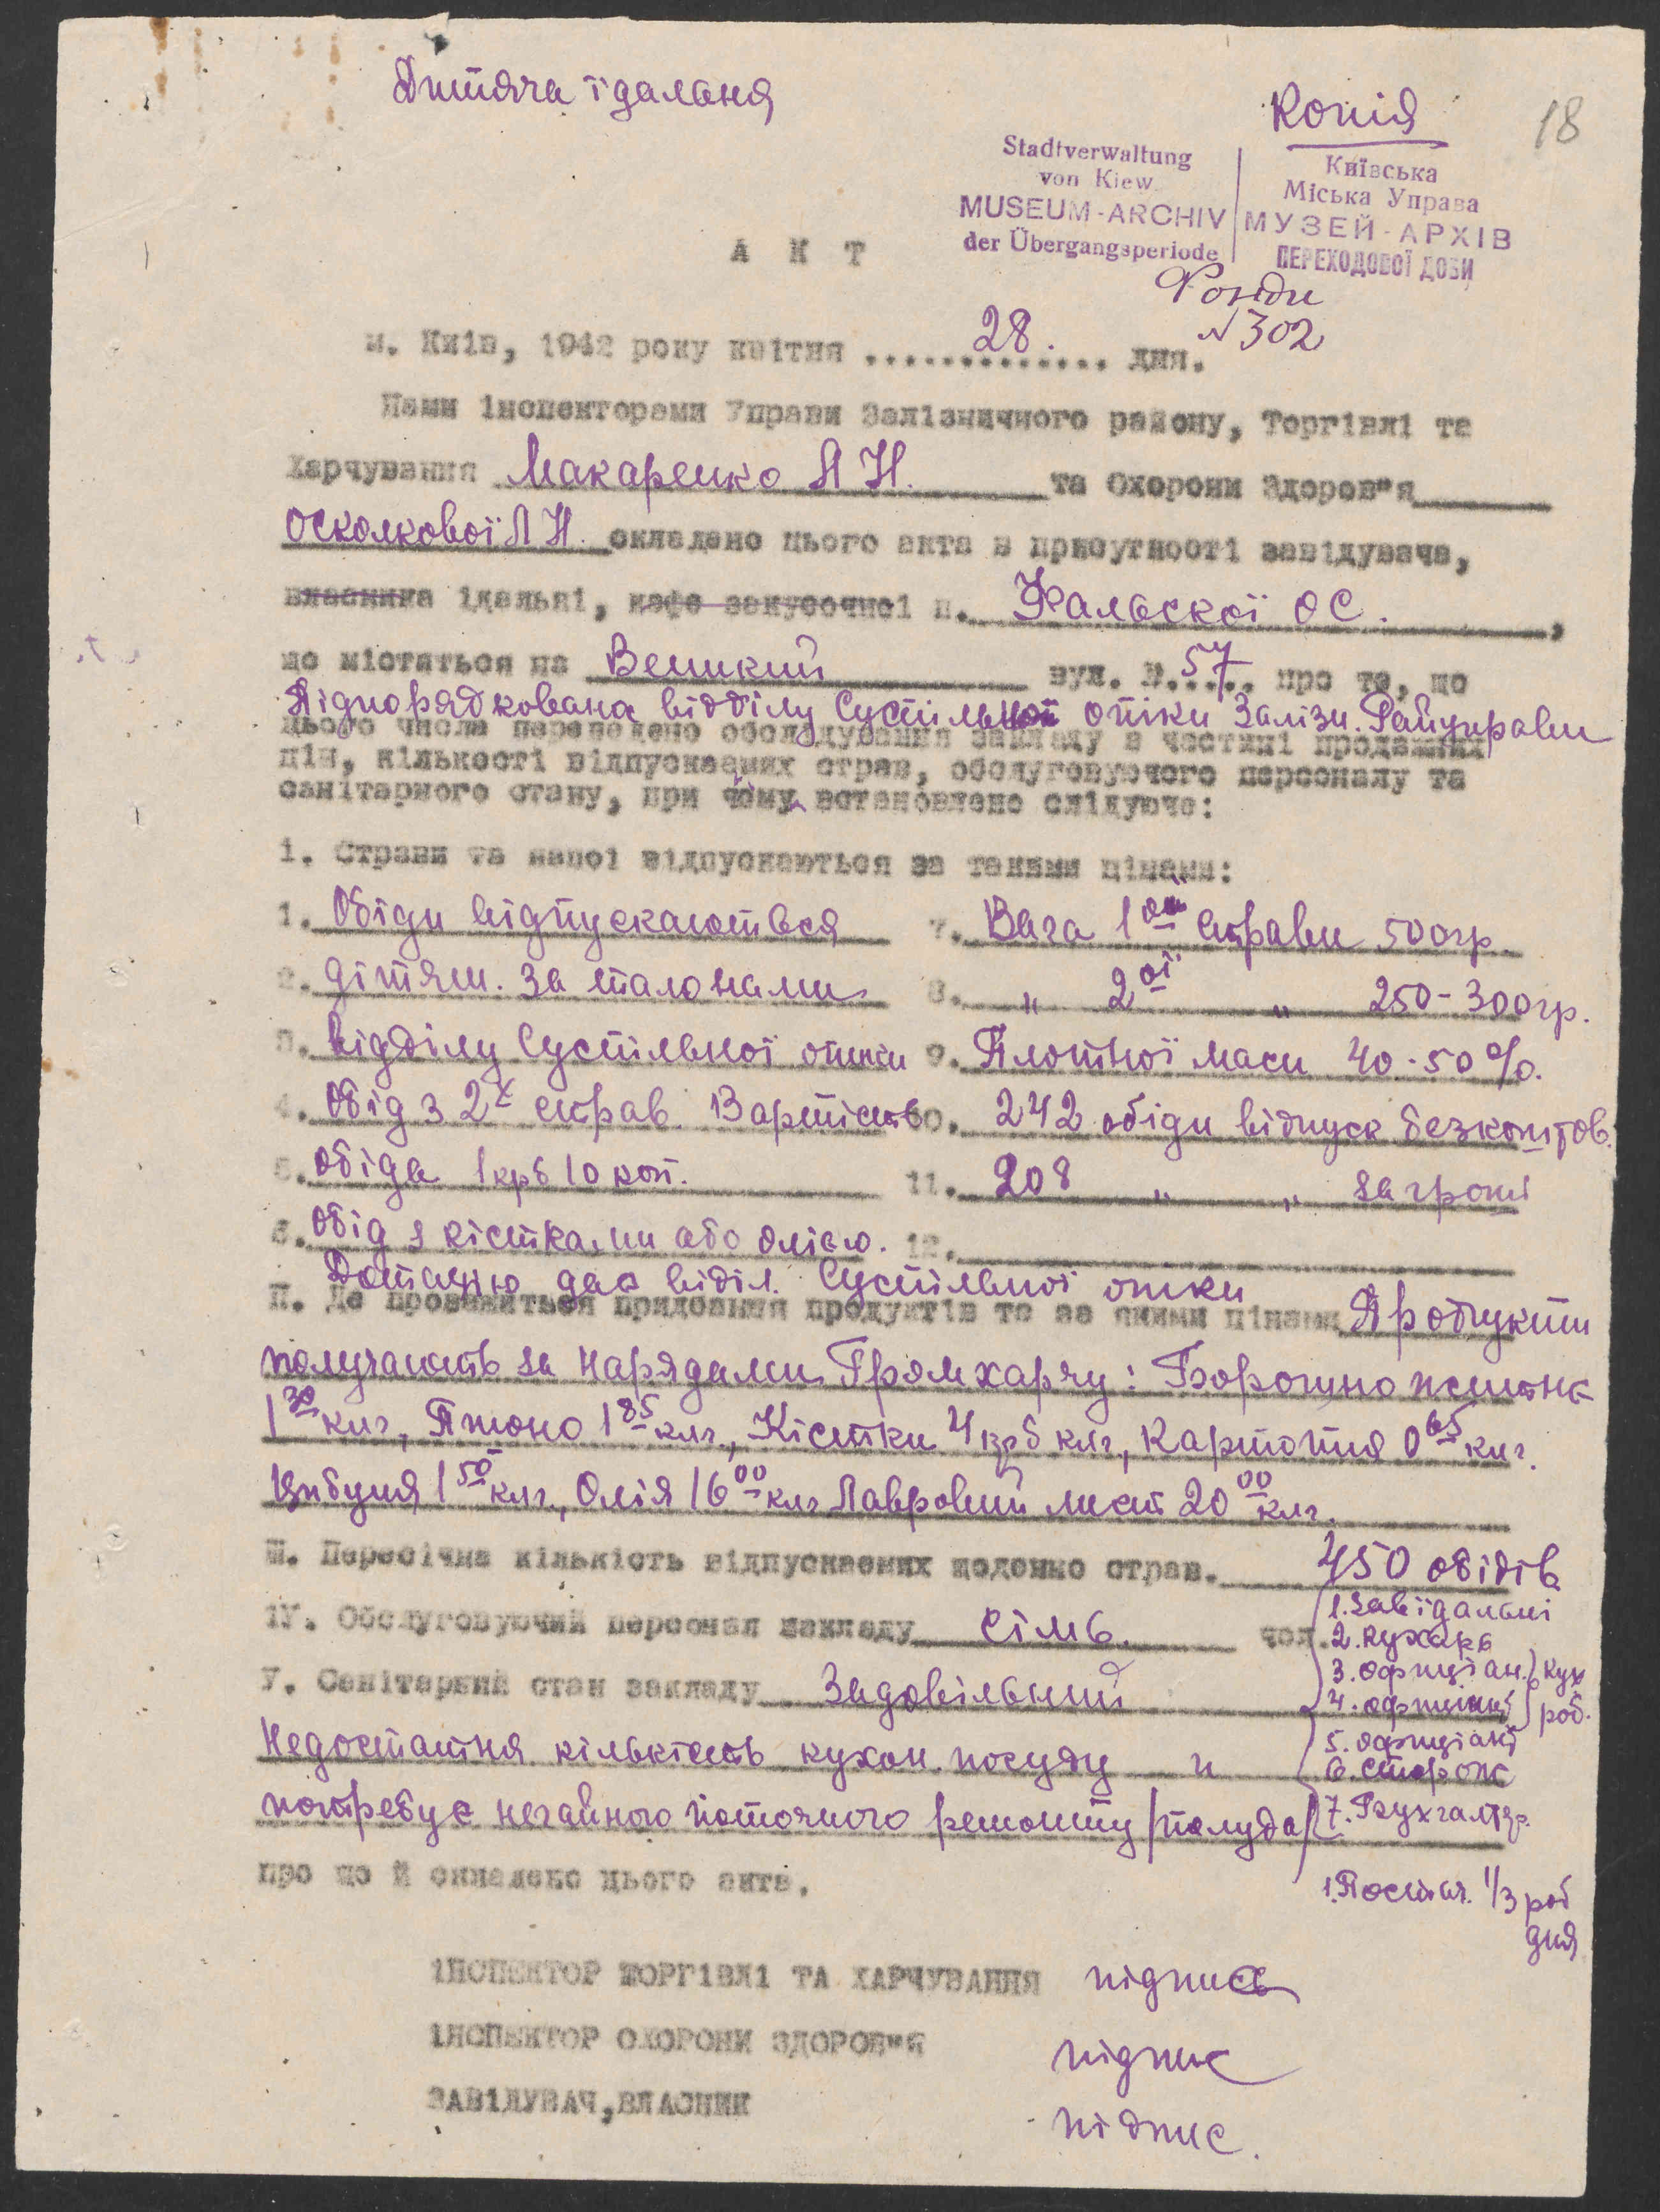 Дитяча їдальня
Копія
18
Stadtverwaltung
von Kiew
MUSEUM-ARCHIV
der Übergangsperiode
Київська
Міська Управа
МУЗЕЙ-АРХІВ
ПЕРЕХОДОВОЇ ДОБИ
Фонди
№302
А К Т
м. Київ, 1942 року квітня ...28.... дня.
Нами інспекторами Управи Залізничного району, Торгівлі та
Харчування Макаренко А Н. та Охорони Здоров"я
Осколкової Л Н. складено цього акта в присутності завідувача,
власника їдальні, кафе закусочної п. Фальскої О С.,
що міститься на Великий вул. №.57.. про те, що
Підпорядкована відділу Суспільної опіки Заліз. Райуправи
цього числа переведено обслідування закладу в частині продажних
цін, кількості відпускаємих страв, обслуговуючого персоналу та
санітарного стану, при чому встановлено слідуюче:
1. Страви та напої відпускаються за такими цінами:
1. Обіди відпускаються 7. Вага 1ої страви 500гр.
2. дітям. за талонами 8. „ 2ої „ 250-300гр.
3. відділу Суспільної опіки 9. Плотної маси 40-50%.
4. Обід з 2х страв. Вартість 10. 242 обіди відпуск безкоштов.
5. обіда 1 крб 10 коп. 11. 208 „ „ за гроші
6. Обід з кістками або олією. 12.
Дотацію дає віділ. Суспільної опіки
П. Де провадиться придбання продуктів та за якими цінами Продукти
получають за нарядами Громхарчу: Борошно житнє
1 30 клг, Пшоно 1 85 клг., Кістки 4 крб клг, Картопля 0 65 клг.
Цибуля 1 50 клг., Олія 16 00 клг Лавровий лист 20 00 клг.
Ш. Пересічна кількість відпускаємих щоденно страв. 450 обідів
1У. Обслуговуючий персонал закладу сімь. чол.
1. Зав їдальні
2. Кухарь
3. Офиціан. } кух
4. офиціан } роб.
5. офиціант
6. сторож
7. Бухгалтер.
1. Постач. 1/3 роб
дня
У. Санітарний стан закладу Задовільний
Недостатня кількість кухон. посуду и
потребує негайного поточного ремонту /полуда/
про що й складено цього акта.
ІНСПЕКТОР ТОРГІВЛІ ТА ХАРЧУВАННЯ підпись
ІНСПЕКТОР ОХОРОНИ ЗДОРОВ"Я підпис
ЗАВІДУВАЧ, ВЛАСНИК підпис.